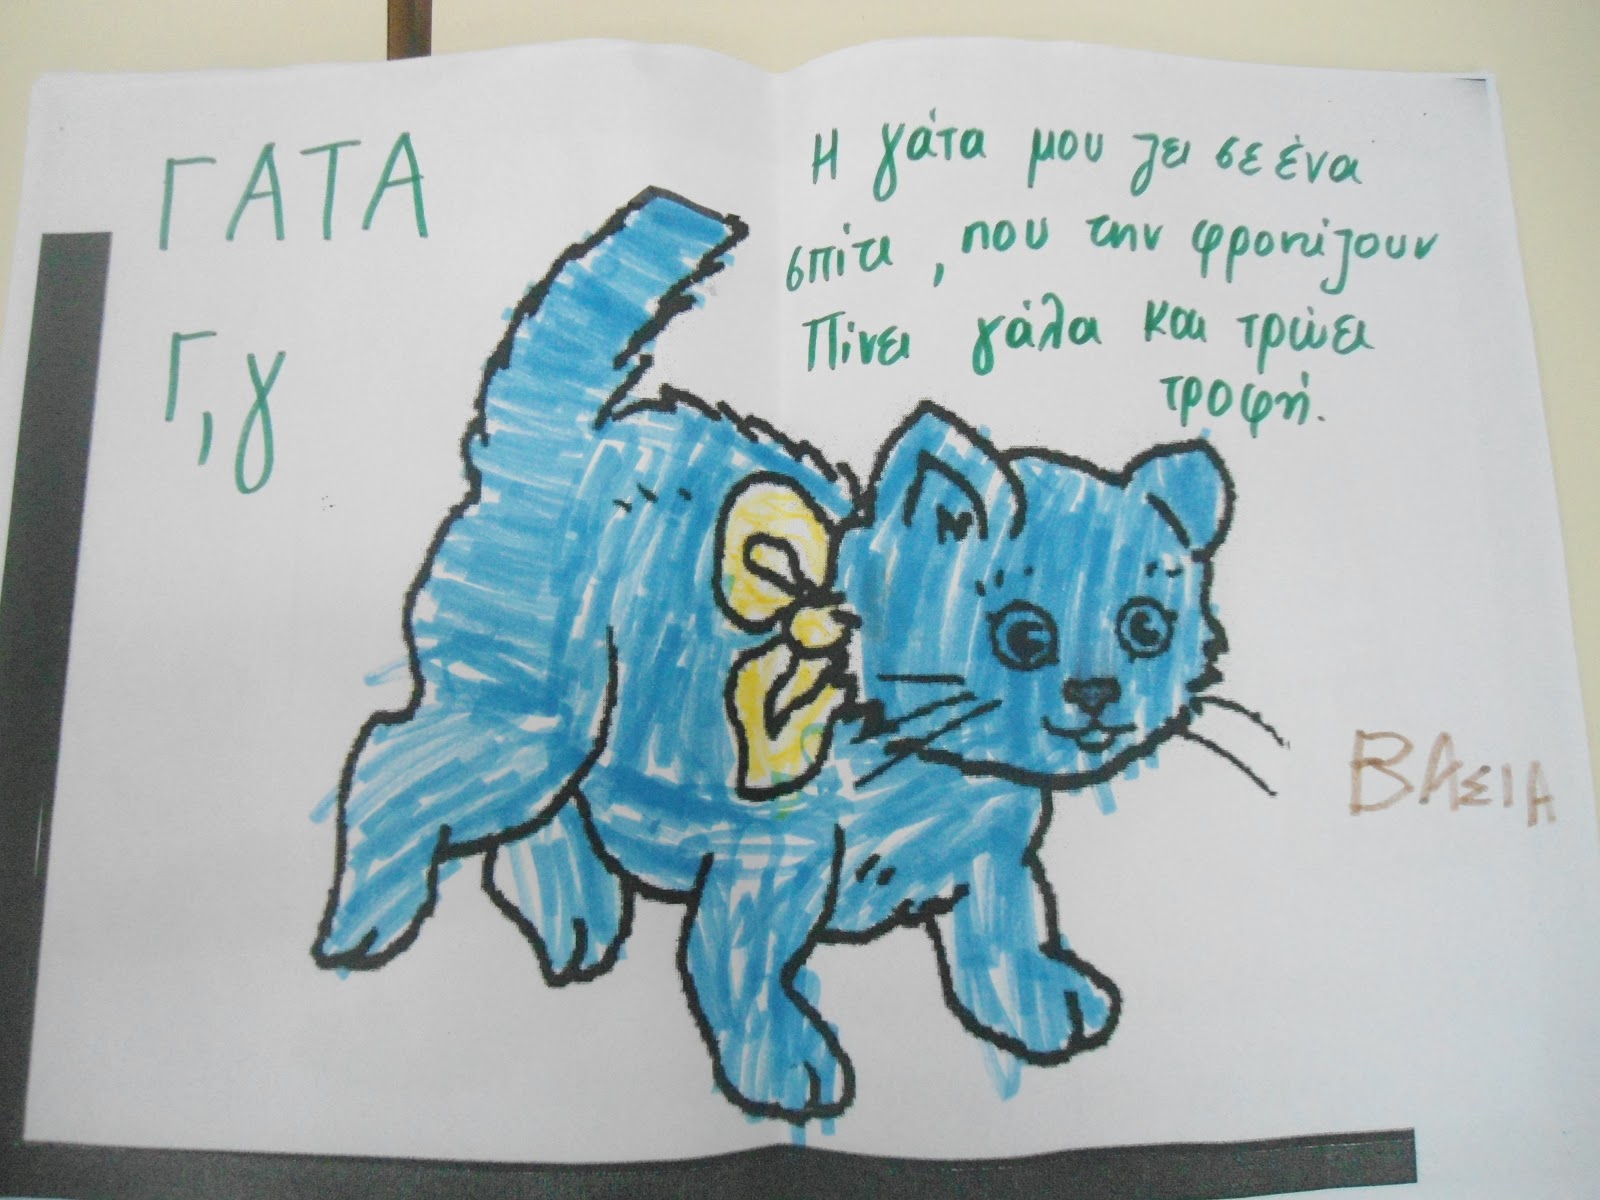 ΓΑΤΑ
Γ, γ
Η γάτα μου ζει σε ένα
σπίτι, που την φροντίζουν
Πίνει γάλα και τρώει
τροφή.
ΒΑΣΙΑ